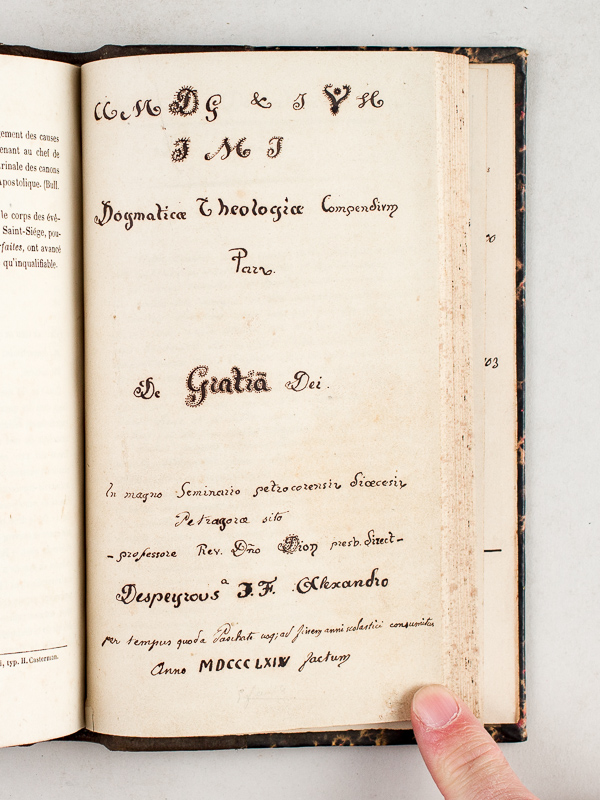 gement des causes
enant au chef de
trinale des canons
apostolique. (Bull.
le corps des évê-
Saint-Siége, pou-
faites, ont avancé
qu'inqualifiable.
i, typ. H. Casterman.
AMDG & J V H
J M J
Dogmaticæ Theologiæ Compendium
Pars.
De Gratiâ Dei.
In magno Seminario petrocorensis diœcesis
Petragoræ sito
- professore Rev. Dño Dion presb. direct-
Despeyrous a J. F. Alexandro
per tempus quod a Paschate usq; ad finem anni scolastici consumitur
Anno MDCCCLXIV factum